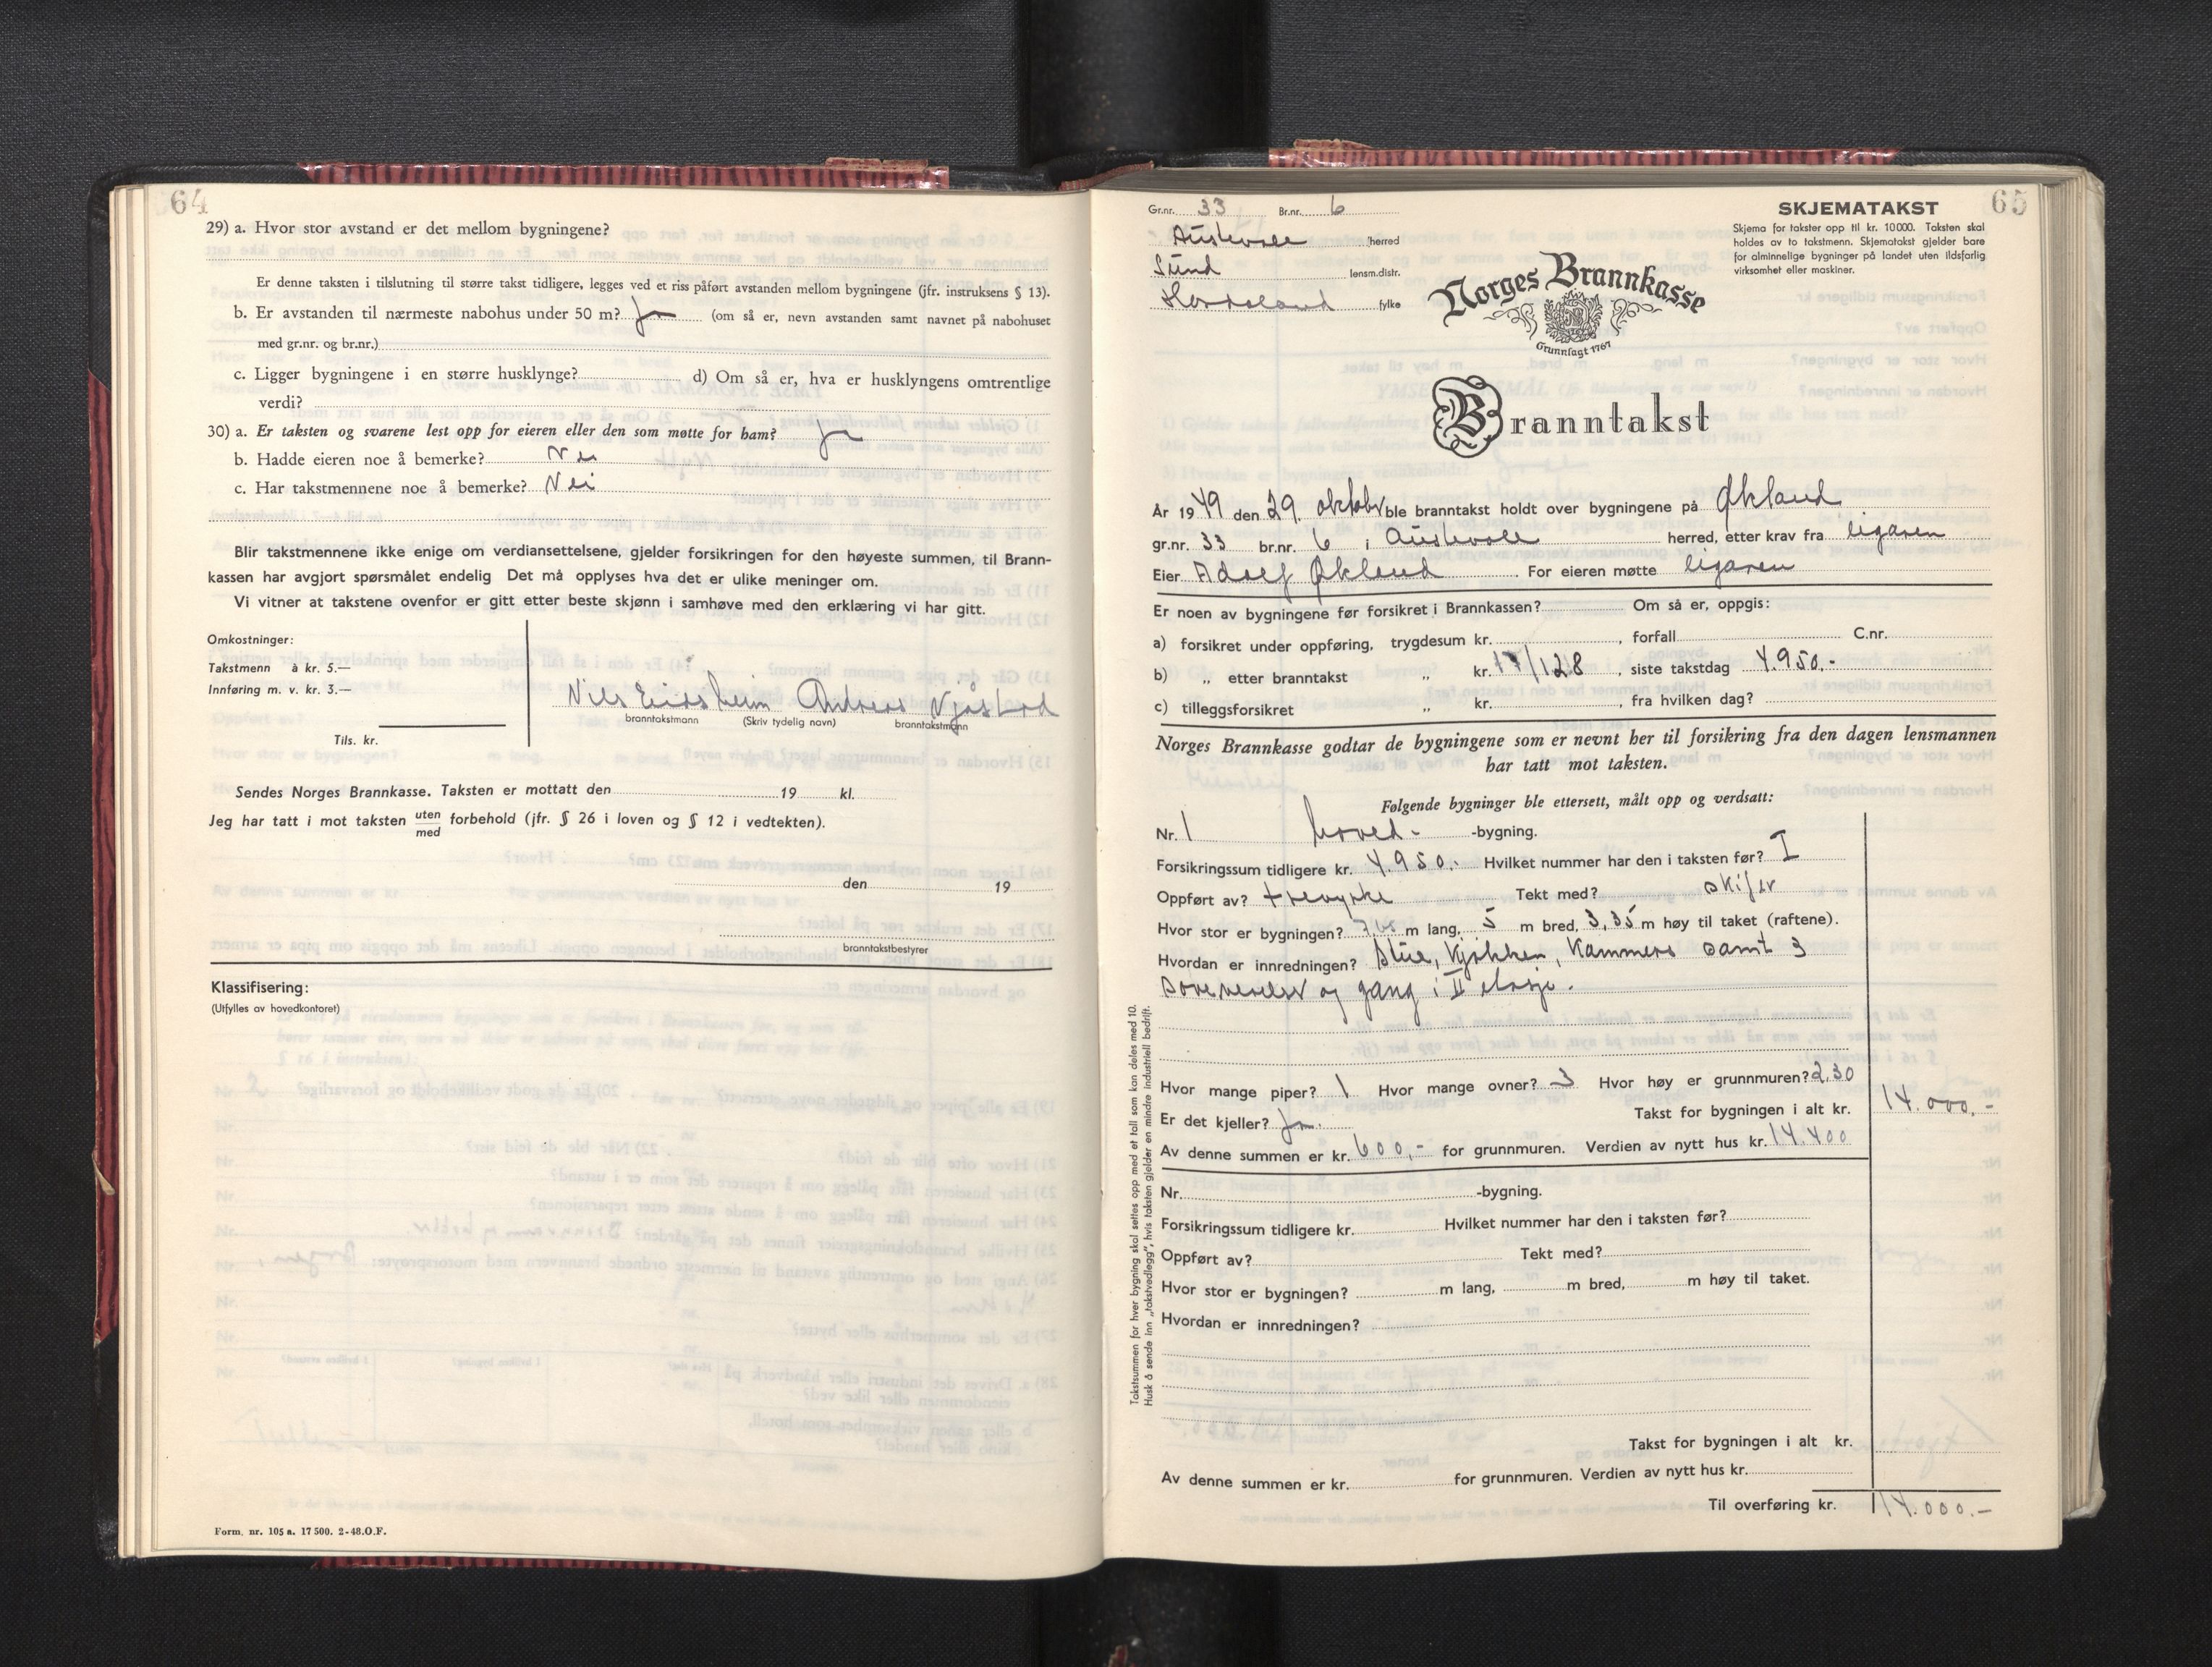 64
29) a. Hvor stor avstand er det mellom bygningene?
Er denne taksten i tilslutning til større takst tidligere, legges ved et riss påført avstanden mellom bygningene (jfr. instruksens § 13).
b. Er avstanden til nærmeste nabohus under 50 m? Ja (om så er, nevn avstanden samt navnet på nabohuset
med gr.nr. og br.nr.)
c. Ligger bygningene i en større husklynge? d) Om så er, hva er husklyngens omtrentlige
verdi?
30) a. Er taksten og svarene lest opp for eieren eller den som møtte for ham? Ja
b. Hadde eieren noe å bemerke? Nei
c. Har takstmennene noe å bemerke? Nei
Blir takstmennene ikke enige om verdiansettelsene, gjelder forsikringen for den høyeste summen, til Brann-
kassen har avgjort spørsmålet endelig Det må opplyses hva det er ulike meninger om.
Vi vitner at takstene ovenfor er gitt etter beste skjønn i samhøve med den erklæring vi har gitt.
Omkostninger:
Takstmenn à kr. 5.—
Innføring m. v. kr. 3.—
Tils. kr.
Nils Eidsheim Andreas Njåstad
branntakstmann (Skriv tydelig navn) branntakstmann
Sendes Norges Brannkasse. Taksten er mottatt den 19 kl.
Jeg har tatt i mot taksten uten/med forbehold (jfr. § 26 i loven og § 12 i vedtekten).
den 19
branntakstbestyrer
Klassifisering:
(Utfylles av hovedkontoret)
Form. nr. 105 a. 17 500. 2-48.O.F.
65
Gr.nr. 33 Br.nr. 6
Austevoll herred
Sund lensm.distr.
Hordaland fylke
SKJEMATAKST
Skjema for takster opp til kr. 10 000. Taksten skal
holdes av to takstmenn. Skjematakst gjelder bare
for alminnelige bygninger på landet uten ildsfarlig
virksomhet eller maskiner.
Norges Brannkasse
Grunnlagt 1767
Branntakst
År 1949 den 29. oktobr ble branntakst holdt over bygningene på Økland
gr.nr. 33 br.nr. 6 i Austevoll herred, etter krav fra eigaren
Eier Adolf Økland For eieren møtte eigaren
Er noen av bygningene før forsikret i Brannkassen? Om så er, oppgis:
a) forsikret under oppføring, trygdesum kr. , forfall C.nr.
b) „ etter branntakst „ kr. 17/128 , siste takstdag 4.950.-
c) tilleggsforsikret „ kr. , fra hvilken dag?
Norges Brannkasse godtar de bygningene som er nevnt her til forsikring fra den dagen lensmannen
har tatt mot taksten.
Følgende bygninger ble ettersett, målt opp og verdsatt:
Nr. 1 hoved- -bygning.
Forsikringssum tidligere kr. 4.950.- Hvilket nummer har den i taksten før? I
Oppført av? trevyrke Tekt med? skifer
Hvor stor er bygningen? m lang, 5 m bred, 3,35 m høy til taket (raftene).
Hvordan er innredningen? Stue, Kjøkken, Kammers samt 3
soveverelser og gang i II etasje.
Hvor mange piper? 1 Hvor mange ovner? 3 Hvor høy er grunnmuren? 2,30
Er det kjeller? Ja. Takst for bygningen i alt kr. 14.000,-
Av denne summen er kr. 600,- for grunnmuren. Verdien av nytt hus kr. 14.400
Nr. -bygning.
Forsikringssum tidligere kr. Hvilket nummer har den i taksten før?
Oppført av? Tekt med?
Hvor stor er bygningen? m lang, m bred, m høy til taket.
Hvordan er innredningen?
Takst for bygningen i alt kr.
Av denne summen er kr. for grunnmuren. Verdien av nytt hus kr.
Til overføring kr. 14.000.-
Takstsummen for hver bygning skal settes opp med et tall som kan deles med 10.
Husk å sende inn „takstvedlegg", hvis taksten gjelder en mindre industriell bedrift.